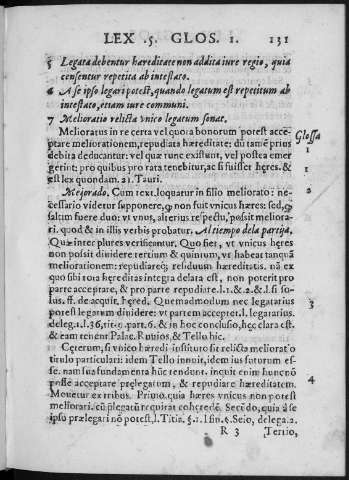 LEX .5. GLOS. 1. 131
5 Legata debentur hæreditate non addita iure regio, quia
censentur repetita ab intestato.
6 A se ipso legari potest, quando legatum est repetitum ab
intestato, etiam iure communi.
7 Melioratio relicta vnico legatum sonat.
Melioratus in re certa vel quota bonorum potest acce-
ptare meliorationem, repudiata hæreditate: dũ tamẽ prius
debita deducantur: vel quæ tunc extiunt, vel postea emer
gerint: pro quibus pro rata tenebitur, ac si fuisset hęres. &
est lex quondam. 21. Tauri.
Glossa
1
1
Mejorado. Cum text. loquatur in filio meliorato: ne-
cessario videtur supponere, q̃ non fuit vnicus hæres: sed, q̃
saltum fuere duo: vt vnus, alterius respectu, possit meliora-
ri. quod & in illis verbis probatur. Al tiempo de la partija,
Quæ inter plures verificantur. Quo fiet, vt vnicus hęres
non possit diuidere tertium & quintum, vt habeat tanquã
meliorationem: repudiareq; residuum hæreditatis. nã ex
quo sibi tota hęreditas integra delata est, non poterit pro
parte acceptare, & pro parte repudiare. l. 1. & 2. & l. si so-
lus. ff. de acquir. hęred. Quemadmodum nec legatarius
potest legatum diuidere: vt partem acceptet. l. legatarius.
deleg. 1. l. 36. tit. 9. part. 6. & in hoc conclusio, hęc clara est.
& eam tenent Palac. Ruuios, & Tello hic.
2
3
Cęterum, si vnico hæredi instituto sit relicta melioratio
titulo particulari: idem Tello innuit, idem ius futurum es-
se. nam sua fundamenta hũc tendent. inquit enim hunc nõ
possẽ acceptare pręlegatum, & repudiare hæreditatem.
Mouetur ex tribus. Primo, quia hæres vnicus non potest
meliorari. cũ pręlegatũ requirat cohęredẽ. Secũdo, quia à se
ipso prælegari nõ potest, l. Titia. §. 1. l. fin. §. Seio, delega. 2.
4
R 3 Tertio,